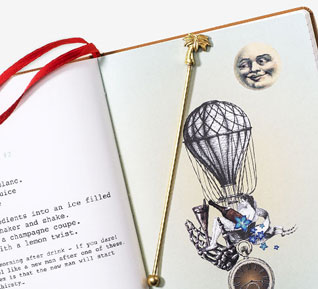 lanc.
uice
edients into an ice filled
haker and shake.
a champagne coupe.
ith a lemon twist.
morning after drink - if you dare!
el like a new man after one of these.
es is that the new man will start
hirsty.